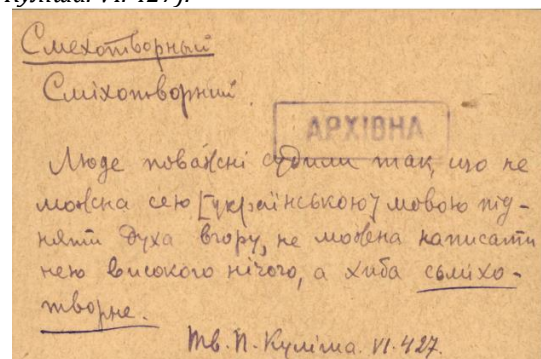 Куліша. VI. 427).
Смехотворный
Сміхотворний.
АРХІВНА
Люде поважні судили так, що не
можна сею [українською] мовою під-
няти духа вгору, не можна написати
нею високого нічого, а хиба сьміхо-
творне.
Тв. П. Куліша. VI. 427.